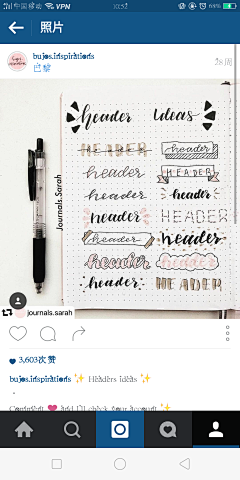 中国移动 VPN 10:52 68%
照片
bujos.inspirations
巴黎 28周
header ideas
HEADER header
header HEADER
header header
header HEADER
header headers
header header
header HEADER
Journals.Sarah
journals.sarah
3,603次赞
bujos.inspirations ✨ Headers ideas ✨
Comment ❤ and DM
account ✨